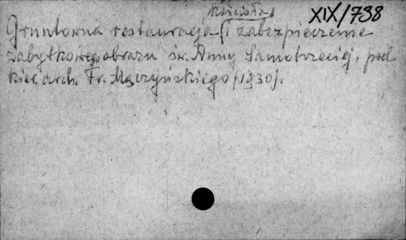 kościoła XIX/738
Gruntowna restauracja i zabezpieczenie
zabytkowego obrazu św. Anny Samotrzeciej, pod
kier. arch. Fr. Mączyńskiego /1930/.